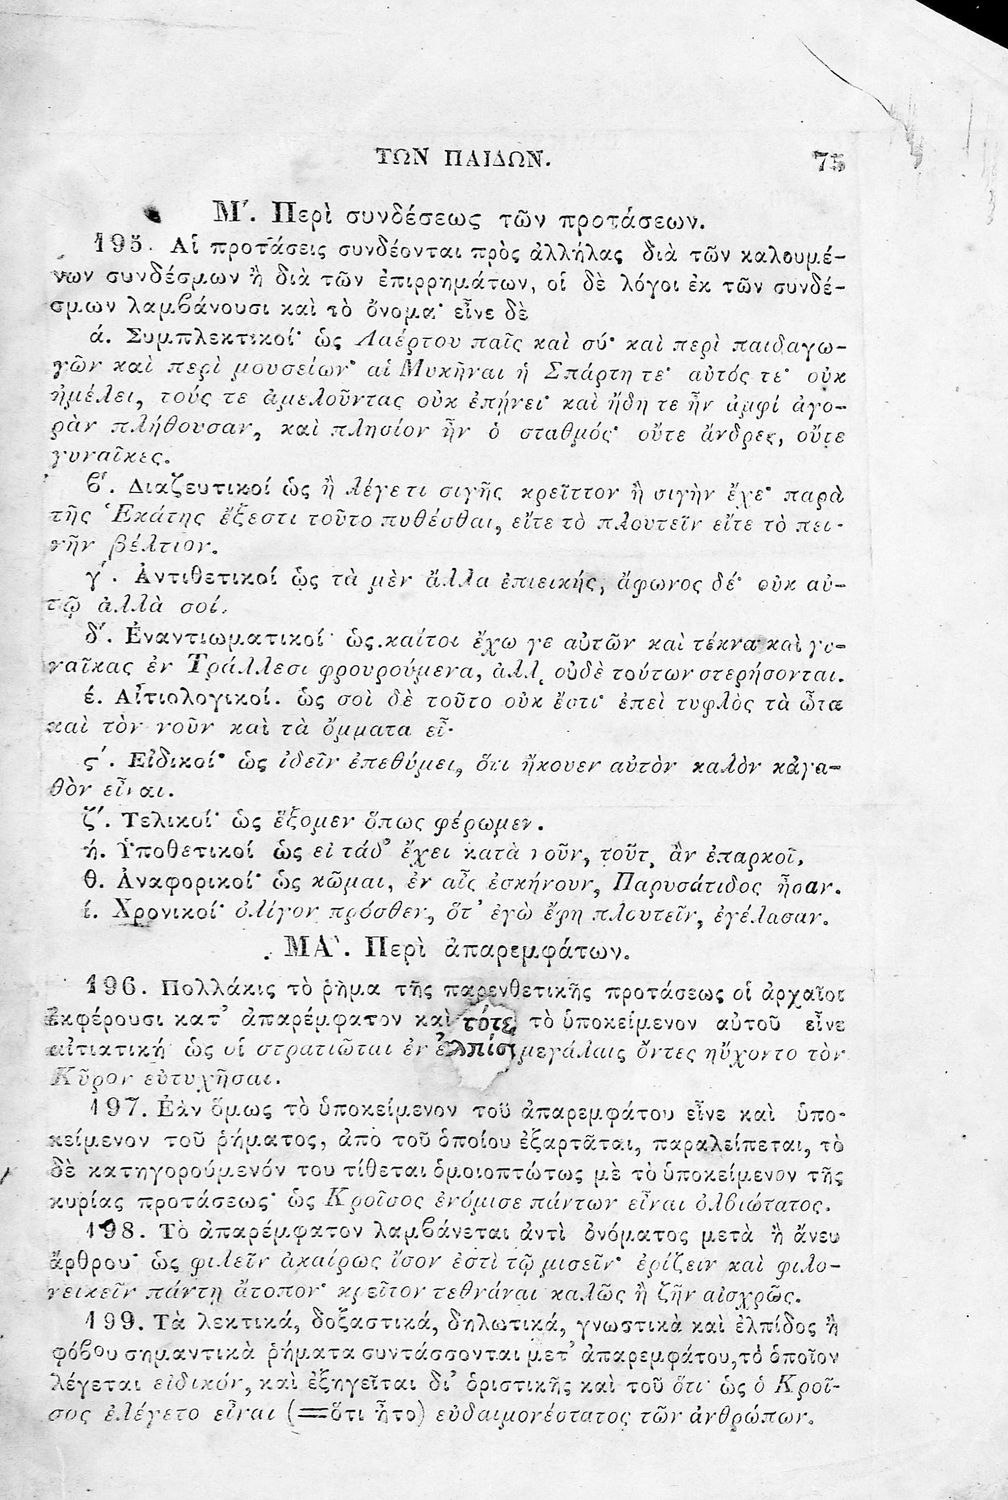 ΤΩΝ ΠΑΙΔΩΝ. 75
Μ΄. Περὶ συνδέσεως τῶν προτάσεων.
195. Αἱ προτάσεις συνδέονται πρὸς ἀλλήλας διὰ τῶν καλουμέ-
νων συνδέσμων ἢ διὰ τῶν ἐπιρρημάτων, οἱ δὲ λόγοι ἐκ τῶν συνδέ-
σμων λαμβάνουσι καὶ τὸ ὄνομα· εἶνε δὲ
ά. Συμπλεκτικοί· ὡς Λαέρτου παῖς καὶ σύ· καὶ περὶ παιδαγω-
γῶν καὶ περὶ μουσείων· αἱ Μυκῆναι ἡ Σπάρτη τε· αὐτός τε· οὐκ
ἠμέλει, τούς τε ἀμελοῦντας οὐκ ἐπῄνει· καὶ ἤδη τε ἦν ἀμφί ἀγο-
ρὰν πλήθουσαν, καὶ πλησίον ἦν ὁ σταθμός· οὔτε ἄνδρες, οὔτε
γυναῖκες.
β΄. Διαζευτικοί ὡς ἢ λέγε τι σιγῆς κρεῖττον ἢ σιγὴν ἔχε· παρὰ
τῆς Ἑκάτης ἔξεστι τοῦτο πυθέσθαι, εἴτε τὸ πλουτεῖν εἴτε τὸ πει-
νῆν βέλτιον.
γ΄. Ἀντιθετικοί ὡς τὰ μὲν ἄλλα ἐπιεικής, ἄφωνος δέ· οὐκ αὐ-
τῷ ἀλλὰ σοί.
δ΄. Ἐναντιωματικοί· ὡς καίτοι ἔχω γε αὐτῶν καὶ τέκνα καὶ γυ-
ναῖκας ἐν Τράλλεσι φρουρούμενα, ἀλλ̓ οὐδὲ τούτων στερήσονται.
έ. Αἰτιολογικοί. ὡς σοὶ δὲ τοῦτο οὐκ ἔστι· ἐπεὶ τυφλὸς τὰ ὦτα
καὶ τὸν νοῦν καὶ τὰ ὄμματα εἶ·
ς΄. Εἰδικοί· ὡς ἰδεῖν ἐπεθύμει, ὅτι ἤκουεν αὐτὸν καλὸν κἀγα-
θὸν εἶναι.
ζ΄. Τελικοί· ὡς ἕξομεν ὅπως φέρωμεν.
ή. Ὑποθετικοί ὡς εἰ τάδ' ἔχει κατὰ νοῦν, τοῦτ̓ ἂν ἐπαρκοῖ.
θ. Ἀναφορικοί· ὡς κῶμαι, ἐν αἷς ἐσκήνουν, Παρυσάτιδος ἦσαν.
ί. Χρονικοί· ὀλίγον πρόσθεν, ὅτ' ἐγὼ ἔφη πλουτεῖν, ἐγέλασαν.
ΜΑ΄. Περὶ ἀπαρεμφάτων.
196. Πολλάκις τὸ ῥῆμα τῆς παρενθετικῆς προτάσεως οἱ ἀρχαῖοι
ἐκφέρουσι κατ' ἀπαρέμφατον καὶ τότε τὸ ὑποκείμενον αὐτοῦ εἶνε
αἰτιατική ὡς οἱ στρατιῶται ἐν ἐλπίσι μεγάλαις ὄντες ηὔχοντο τὸν
Κῦρον εὐτυχῆσαι.
197. Ἐὰν ὅμως τὸ ὑποκείμενον τοῦ ἀπαρεμφάτου εἶνε καὶ ὑπο-
κείμενον τοῦ ῥήματος, ἀπὸ τοῦ ὁποίου ἐξαρτᾶται, παραλείπεται, τὸ
δὲ κατηγορούμενόν του τίθεται ὁμοιοπτώτως μὲ τὸ ὑποκείμενον τῆς
κυρίας προτάσεως· ὡς Κροῖσος ἐνόμισε πάντων εἶναι ὀλβιώτατος.
198. Τὸ ἀπαρέμφατον λαμβάνεται ἀντὶ ὀνόματος μετὰ ἢ ἄνευ
ἄρθρου· ὡς φιλεῖν ἀκαίρως ἴσον ἐστὶ τῷ μισεῖν· ἐρίζειν καὶ φιλο-
νεικεῖν πάντη ἄτοπον· κρεῖτον τεθνάναι καλῶς ἢ ζῆν αἰσχρῶς.
199. Τὰ λεκτικά, δοξαστικά, δηλωτικά, γνωστικὰ καὶ ἐλπίδος ἢ
φόβου σημαντικὰ ῥήματα συντάσσονται μετ' ἀπαρεμφάτου, τὸ ὁποῖον
λέγεται εἰδικόν, καὶ ἐξηγεῖται δι' ὁριστικῆς καὶ τοῦ ὅτι· ὡς ὁ Κροῖ-
σος ἐλέγετο εἶναι (=ὅτι ἦτο) εὐδαιμονέστατος τῶν ἀνθρώπων.